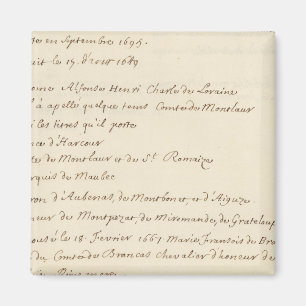 te en Septembre 1695.
ait le 15 d'Aout 1649
ince Alfonse Henri Charle de Loraine
à apellé quelque tems Comte de Montlaur
i les titres qu'il porte
nce d'Harcour
te de Montlaur et de St. Romaize
rquis de Maubec
ron d'Aubenas, de Montbonet, et d'Aiguze
neur de Montpezat, de Miremande, de Grateloup
ousé le 13. Fevrier 1667 Marie Fransoise de Bra
du Comte de Brancas Chevalier d'honeur de